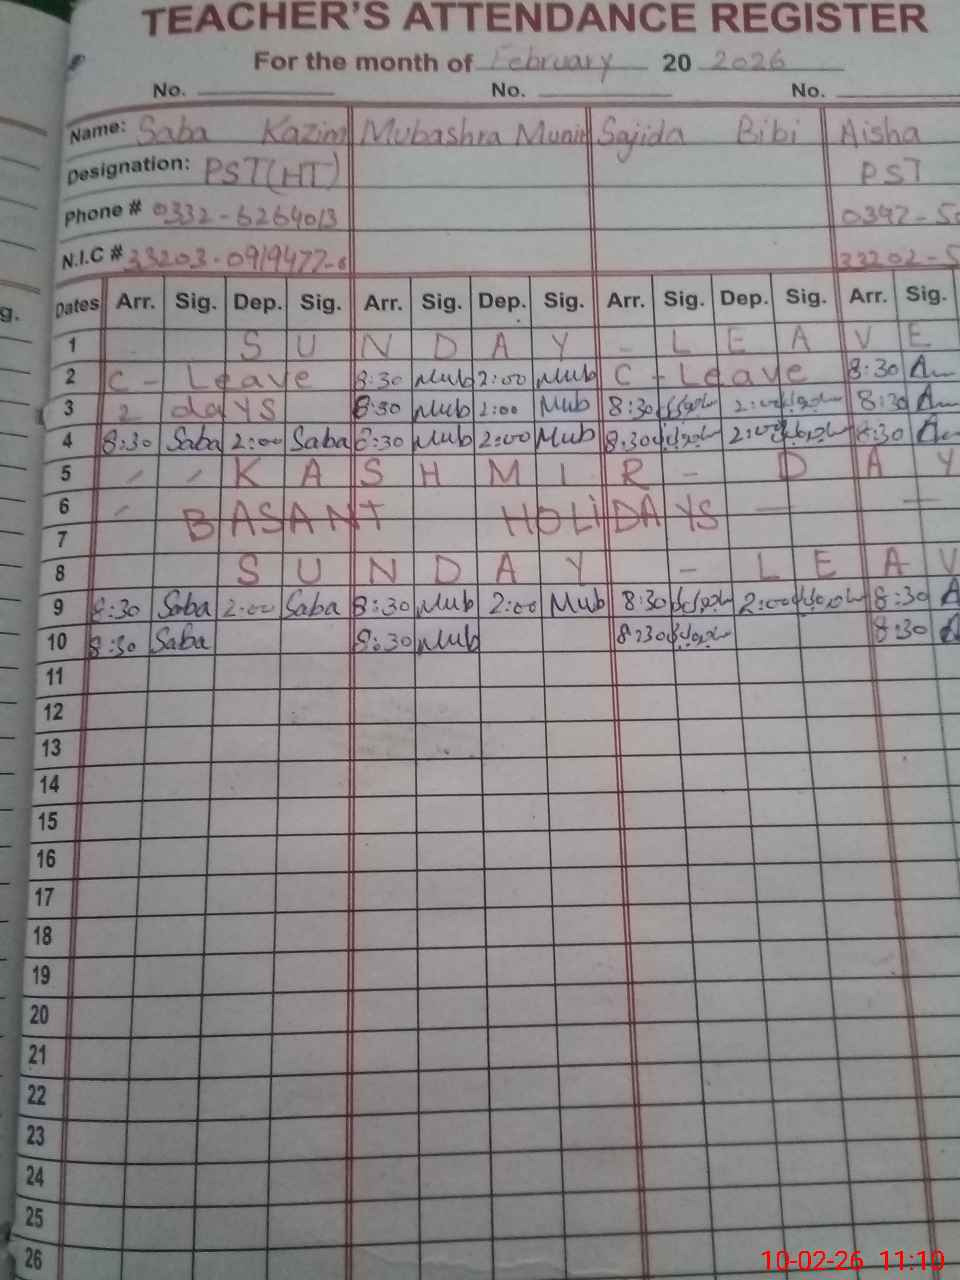 TEACHER'S ATTENDANCE REGISTER
For the month of February 20 2026
No. No. No.
Name: Saba Kazim Mubashra Munir Sajida Bibi Aisha
Designation: PST(HT) PST
Phone # 0332-6264013 0342-50
N.I.C # 33203-0919477-8 33202-5
g. Dates Arr. Sig. Dep. Sig. Arr. Sig. Dep. Sig. Arr. Sig. Dep. Sig. Arr. Sig.
1 SUNDAY - LEAVE
2 C - Leave 8:30 Mub 2:00 Mub C - Leave 8:30
3 2 days 8:30 Mub 2:00 Mub 8:30 2:00 8:30
4 8:30 Saba 2:00 Saba 8:30 Mub 2:00 Mub 8:30 2:00 8:30
5 KASHMIR - DAY
6 BASANT HOLIDAYS
7
8 SUNDAY - LEAV
9 8:30 Saba 2:00 Saba 8:30 Mub 2:00 Mub 8:30 2:00 8:30
10 8:30 Saba 8:30 Mub 8:30 8:30
11
12
13
14
15
16
17
18
19
20
21
22
23
24
25
26
10-02-26 11:10